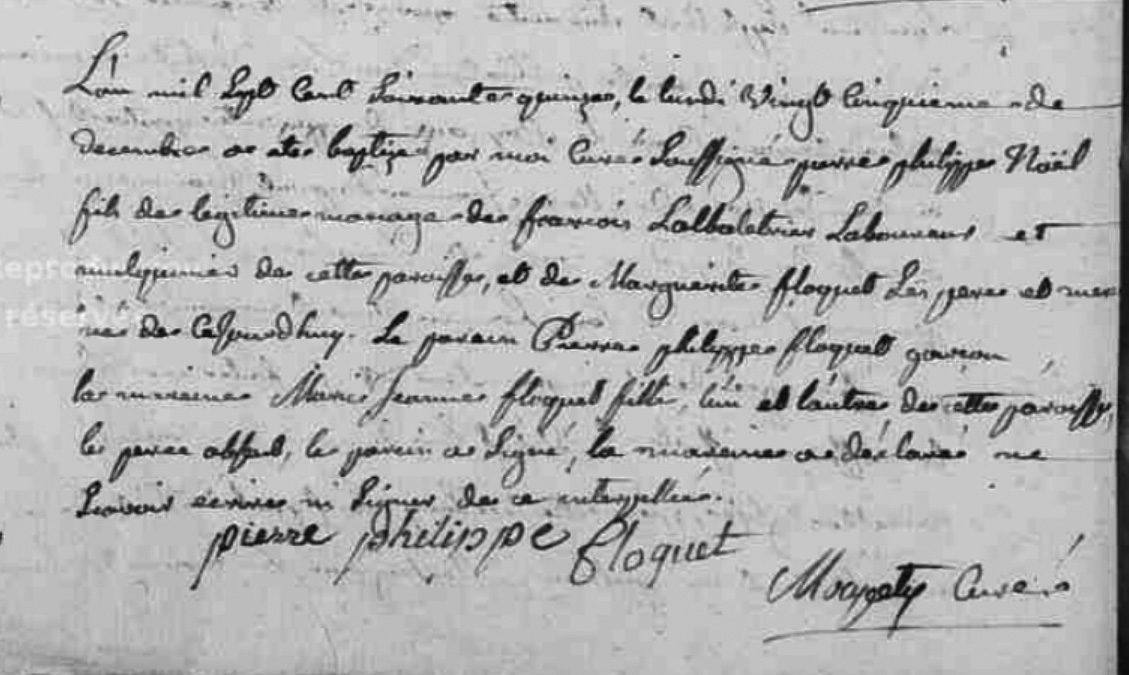 L'an mil sept cent soixante quinze, le lundi vingt cinquieme de
decembre a été baptizé par moi curé soussigné pierre philippe Noël
fils de legitime mariage de françois Lalbaletrier Laboureur et
de cette paroisse, et de Marguerite floquet ses pere et mere
né de cejourdhuy. Le parein Pierre philippe floquet garcon
la mareine Marie Jeanne floquet fille, l'un et l'autre de cette paroisse,
le pere absent, le parein a signé, la mareine a déclaré ne
scavoir ecrire ni signer de ce interpellée.
pierre philippe floquet
Curé